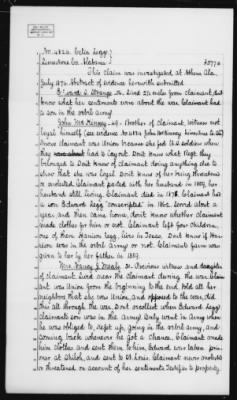 No. 4820. Celia Legg
Limestone Co. Alabama
This claim was investigated at Athens Ala.
July 1874. Abstract of evidence herewith submitted
Edward D. Strange. 54. Lived 2½ miles from claimant, dont
know what her sentiments were about the war. Claimant had
a son in the rebel army.
John McKinney. 49. Brother of claimant, witness not
loyal himself (see evidence No. 4821 John McKinney Limestone Co. Ala)
Knows claimant was Union because she fed U.S. soldiers when
they had to lay out. Dont know what Regt they
belonged to. Dont know of claimant doing anything else to
show that she was loyal. Dont know of her being threatened
or arrested. Claimant parted with her husband in 1859, her
husband still living. Claimant died in 1872. Claimant had
a son Edward Legg "conscripted" in 1862. Served about a
year, and then came home, dont know whether claimant
made clothes for him or not. Claimant left four children,
one of them Legg, lives in Texas. Dont know if
was in the rebel army or not. Claimants farm was
given to her by her father in 1859.
Mrs. Nancy J. 30. Previous witness and daughter
of claimant. Lived near the claimant during the war. Claim
ant was Union from the beginning to the end. Told all her
neighbors that she was Union, and opposed to the war, did
this all through the war. Dont recollect when Edward Legg
Claimants son was in the army. Only went in army when
he was obliged to, kept up going in the rebel army, and
coming back whenever he got a chance. Claimant made
him clothes and sent them to him, Edward was taken pris
oner at Shiloh, and sent to St. Louis. Claimant never molested
or threatened on account of her sentiments. Testifies to property.